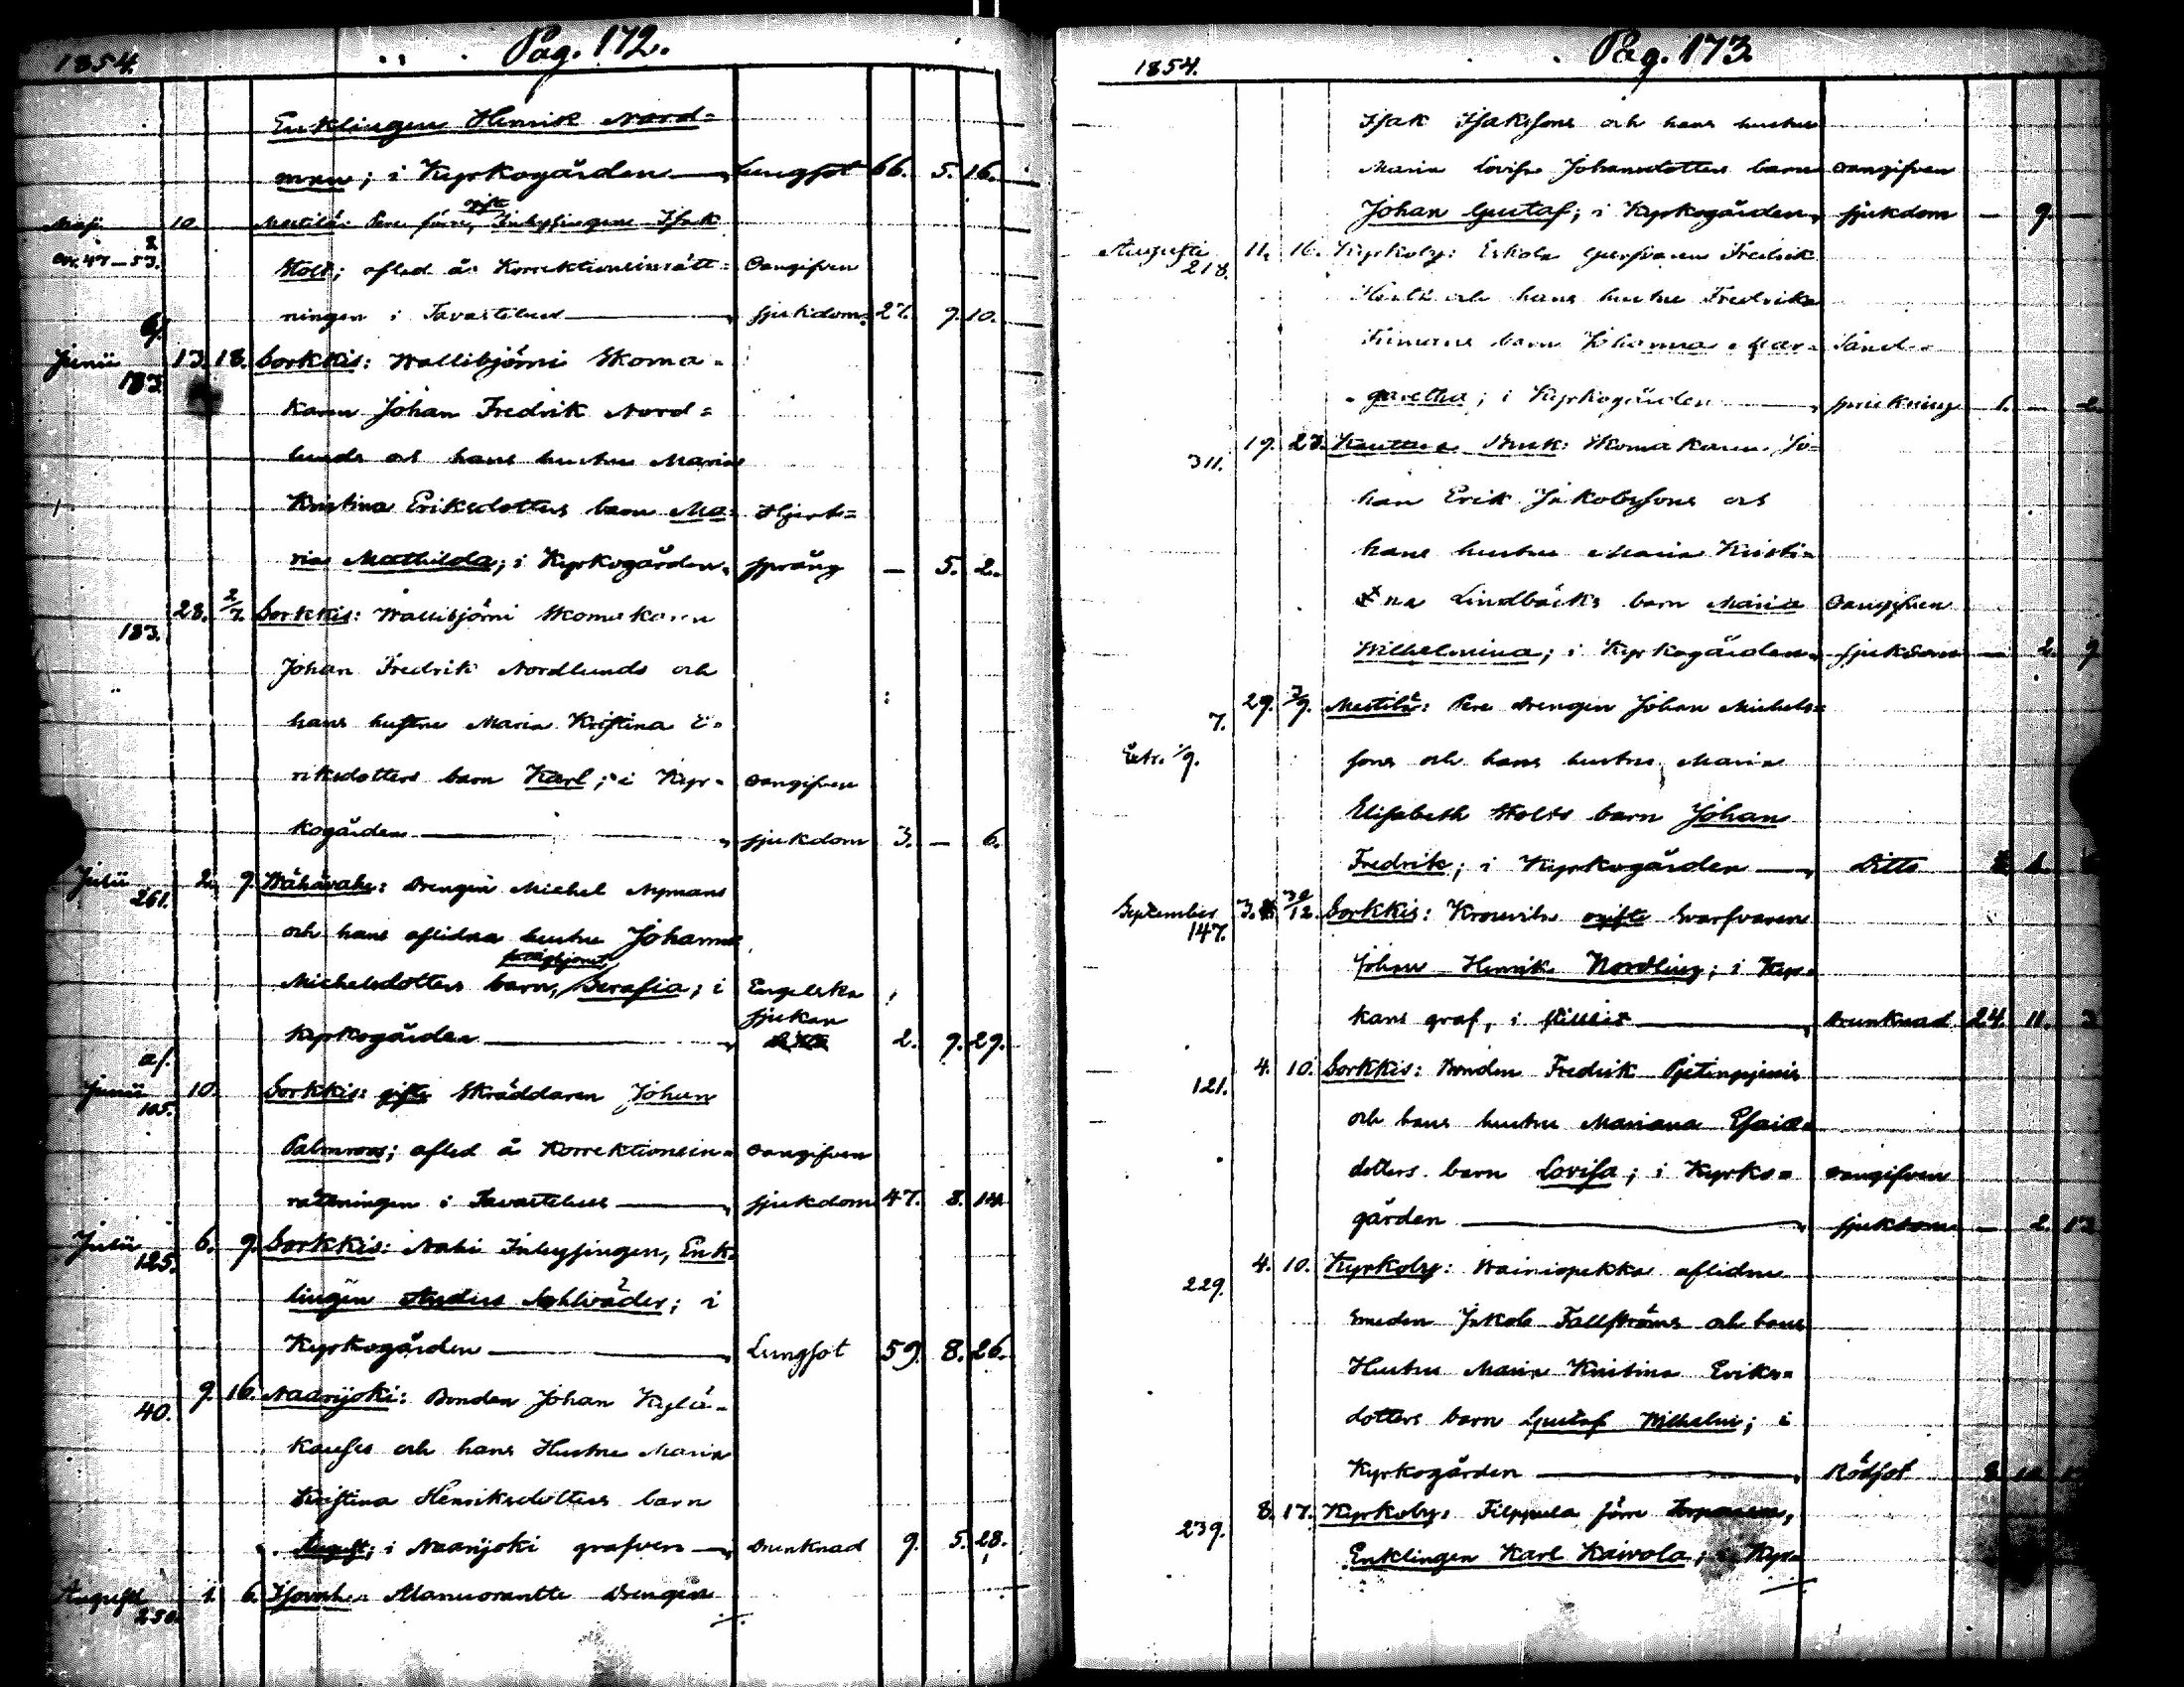 1854. Pag. 172.
Enklingen Henrik Nord=
man; i Kyrkogården Lungsot 66. 5. 16.
Maji 10. Mestilä: Pere förre, gifte Inhysingen Isak
Stolt; afled å Korrektionsinrätt= Oangifven
ningen i Tavastehus sjukdom 27. 9. 10.
Junii 13. 18. Sorkkis: Wallibjörni Skoma=
183.
karen Johan Fredrik Nord=
lunds och hans hustru Maria
Kristina Eriksdotters barn Ma= Hjert=
ria Mathilda; i Kyrkogården språng — 5. 2.
28. 2/7. Sorkkis: Wallibjörni Skomakaren
183.
Johan Fredrik Nordlunds och
hans hustru Maria Kristina E=
riksdotters barn Karl; i Kyr= oangifven
kogården sjukdom 3. — 6.
Julii 2. 9. Wähävahe: Drengen Michel Nymans
261.
och hans aflidna hustru Johanna
Michelsdotters barn, Serafia; i Engelska
sjukan
Kyrkogården 2. 9. 29.
af.
Junii 10. Sorkkis: gifte Skräddaren Johan
105.
Palmroos; afled å Korrektionsin= oangifven
rättningen i Tavastehus sjukdom 47. 8. 14.
Julii 6. 9. Sorkkis: Nahi Inhysingen, Enk=
125.
lingen Anders Sohlväder; i
Kyrkogården Lungsot 59. 8. 26.
9. 16. Naarijoki: Bonden Johan Kylä=
40.
kauses och hans Hustru Maria
Kristina Henriksdotters barn
August; i Naarijoki grafven Drunknad 9. 5. 28.
Augusti 1. 6. Drengen
250.
1854. Pag. 173.
Isak Isakssons och hans hustru
Maria Lovisa Johansdotters barn oangifven
Johan Gustaf; i Kyrkogården sjukdom — 9. —
Augusti 11. 16. Kyrkoby: Eskola Garfvaren Fredrik
218.
och hans hustru Fredrika
barn Johanna Mar=
garetha; i Kyrkogården sprickning 1. — 2.
19. 27. Kauttua Bruk: Skomakaren Jo=
311.
han Erik Jakobssons och
hans hustru Maria Kristi=
na Lindbäcks barn Maria Oangifven
Wilhelmina; i Kyrkogården sjukdom — 2. 9
29. 3/9. Mestilä: Pere Drengen Johan Michels=
7.
Extr. 1/9. sons och hans hustru Maria
Elisabeth Stolts barn Johan
Fredrik; i Kyrkogården Ditto
September 3. 30/12. Sorkkis: Krouvila ogifte Svarfvaren
147.
Johan Henrik Nordling; i Kyr=
kans graf, i stillhet Drunknad 24. 11. 3
4. 10. Sorkkis: Bonden Fredrik
121.
och hans hustru Mariana Esaias
dotters barn Lovisa; i Kyrko= oangifven
gården sjukdom — 2. 13
4. 10. Kyrkoby: Wainiopekka aflidne
229.
Smeden Jakob Fallströms och hans
Hustru Maria Kristina Eriks=
dotters barn Gustaf Wilhelm; i
Kyrkogården Rödsot
8. 17. Kyrkoby: Filppula förre Torparen,
239.
Enklingen Karl Kaivola; i Kyr=